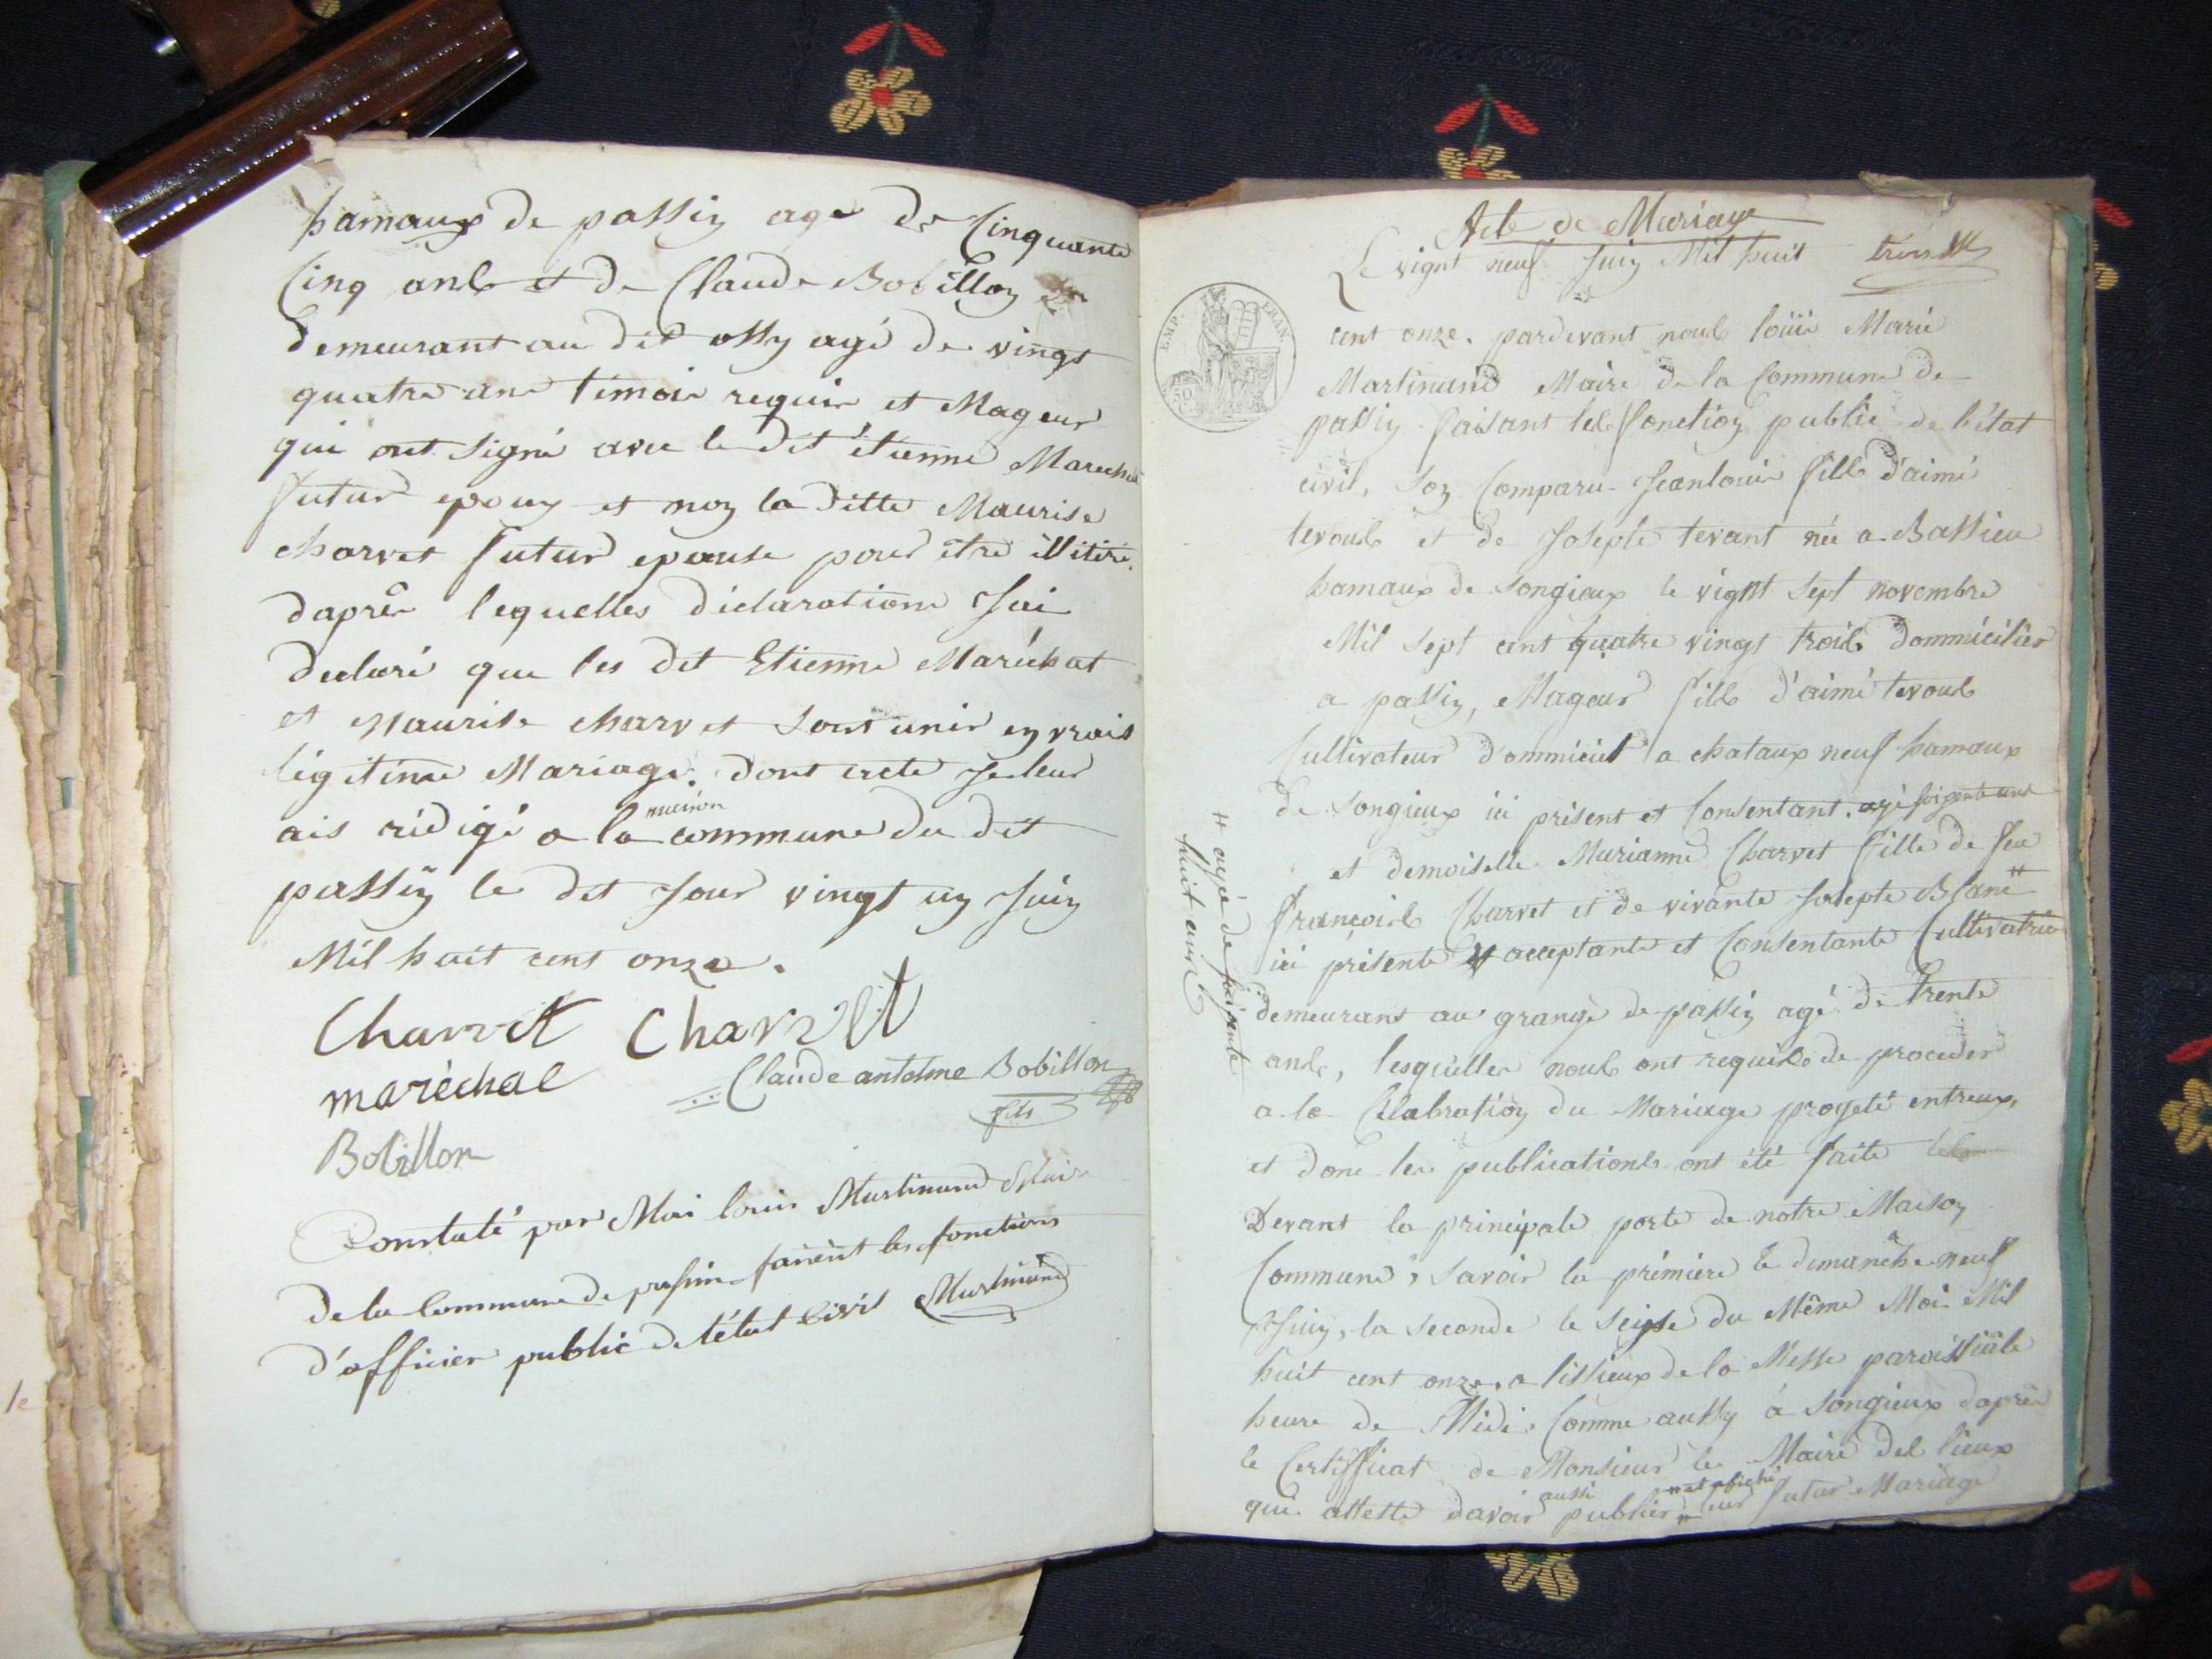 hamaux de passin age de Cinquante
Cinq ans et de Claude Bobillon
Demeurant au dit ossy agé de vingt
quatre ans temoin requis et Mageur
qui ont signé avec le dit étienne Marechal
futur epoux et non la ditte Maurise
charvet futur epouse pour être illitéré.
daprês lequelles déclarations Jai
declaré que les dit Etienne Maréchat
et Maurise charvet sont unir en vrais
légitime Mariage. dont acte Je leur
maison
ais rédigé a la commune du dit
passin le dit Jour vingt un Juin
Mil huit cent onze.
Charvet Charvet
maréchal Claude antelme Bobillon
fils
Bobillon
Constaté par Moi louis Martinand Maire
de la Commune de passin faisant les fonctions
d'officier public de l'état Civil Martinand
Acte de Mariage
Le vignt neuf Juin Mil huit
EMP. FRAN.
50
cent onze. pardevant nous loüis Marie
Martinand Maire de la Commune de
passin faisant les fonction public de l'état
civil, son Comparu Jeanlouis fils d'aimé
tevoub et de Josepte tevant née a Bassieu
hamaux de Songieux le vignt sept novembre
Mil sept cent quatre vingt trois dommicilier
a passin, Mageur fils d'aimé tevoub
Cultivateur d'ommicilé a chataux neuf hamaux
de Songieux ici présent et Consentant. agé soixante ans
# agée de soixante
huit ans
et demoiselle Marianne Charvet fille de feu
françois Charvet et de vivante Josepte Blanc #
ici présente et acceptante et Consentante Cultivatrice
demeurans au grange de passin agé de trente
ans, lesquelles nous ont requis de proceder
a la Celabration du Mariage progeté entreux,
et donc les publications ont été faite
Devant la principale porte de notre Maison
Commune, savoir la premiere le dimanche neuf
Juin, la seconde le seize du Même Mois Mil
huit cent onze. a lissieux de la Messe paroissiale
heure de Midi. Comme aussy à Songieux daprês
le Certifficat de Monsieur le Maire des lieux
aussi et afiché
qui atteste davoir publier leur futur Mariage